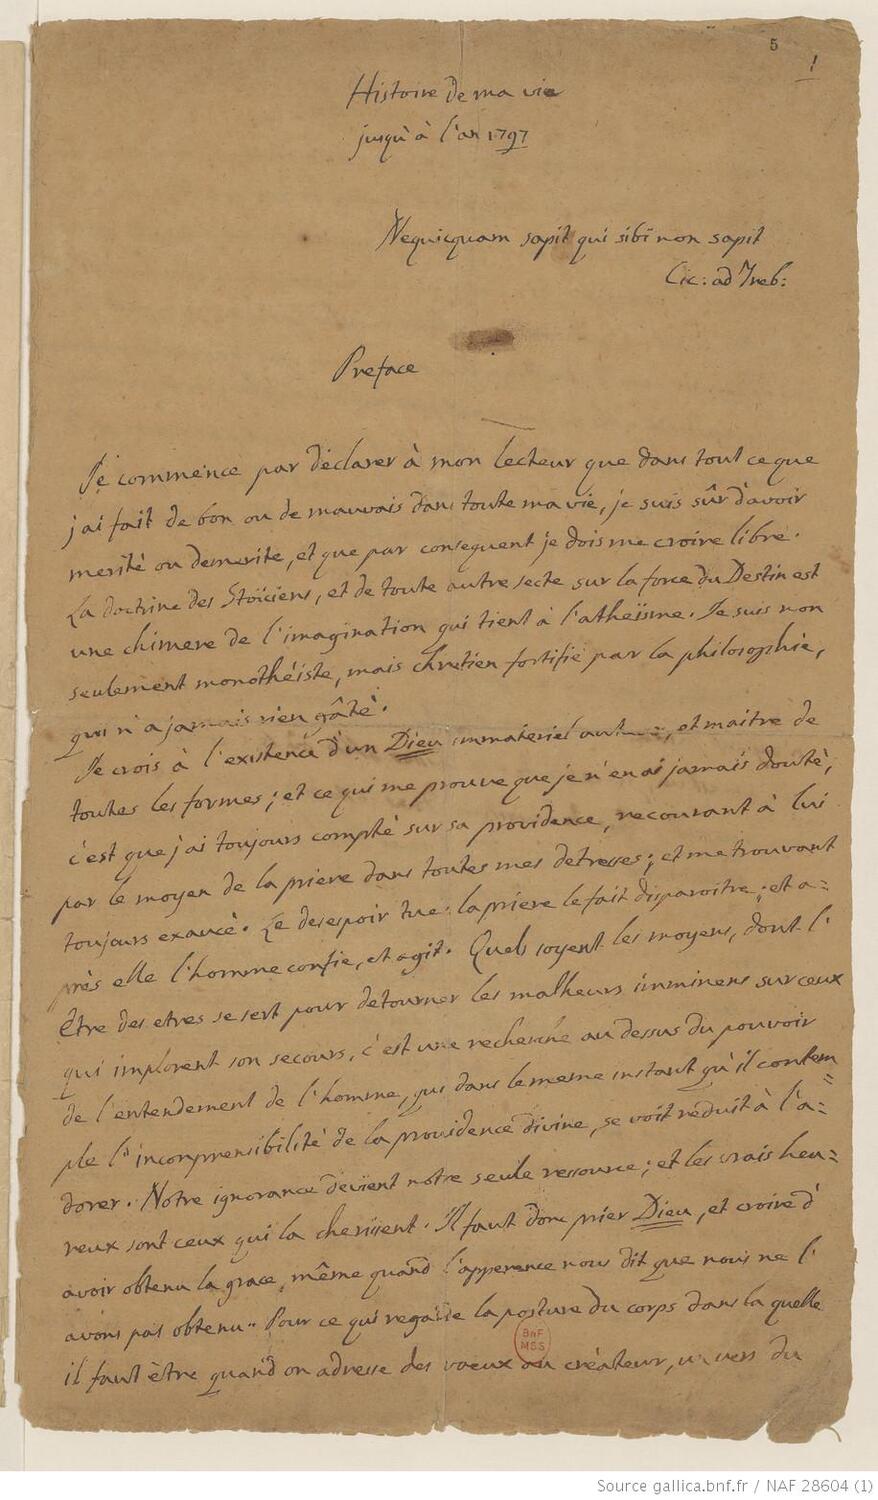 5
1
Histoire de ma vie
jusqu'à l'an 1797
Nequicquam sapit qui sibi non sapit
Cic: ad Treb:
Preface
Je commence par déclarer à mon lecteur que dans tout ce que
j'ai fait de bon ou de mauvais dans toute ma vie, je suis sûr d'avoir
merité ou demerite, et que par consequent je dois me croire libre.
La doctrine des Stoïciens, et de toute autre secte sur la force du Destin est
une chimere de l'imagination qui tient à l'atheïsme. Je suis non
seulement monothéiste, mais chretien fortifié par la philosophie,
qui n'a jamais rien gâté.
Je crois à l'existence d'un Dieu immateriel, et maitre de
toutes les formes; et ce qui me prouve que je n'en ai jamais douté,
c'est que j'ai toujours compté sur sa providence, recourant à lui
par le moyen de la priere dans toutes mes detresses; et me trouvant
toujours exaucé. Le desespoir tue: la priere le fait disparoitre; et a=
près elle l'homme confie, et agit. Quels soyent les moyens, dont l'
Être des etres se sert pour detourner les malheurs imminens sur ceux
qui implorent son secours, c'est une recherche au dessus du pouvoir
de l'entendement de l'homme, qui dans le meme instant qu'il contem=
ple l'incomprensibilité de la providence divine, se voit reduit à l'a=
dorer. Notre ignorance devient notre seule ressource; et les vrais heu=
reux sont ceux qui la cherissent. Il faut donc prier Dieu, et croire d'
avoir obtenu la grace, même quand l'apparence nous dit que nous ne l'
avons pas obtenu. Pour ce qui regarde la posture du corps dans la quelle
il faut être quand on adresse des voeux au créateur, un vers du
BnF
MSS
Source gallica.bnf.fr / NAF 28604 (1)